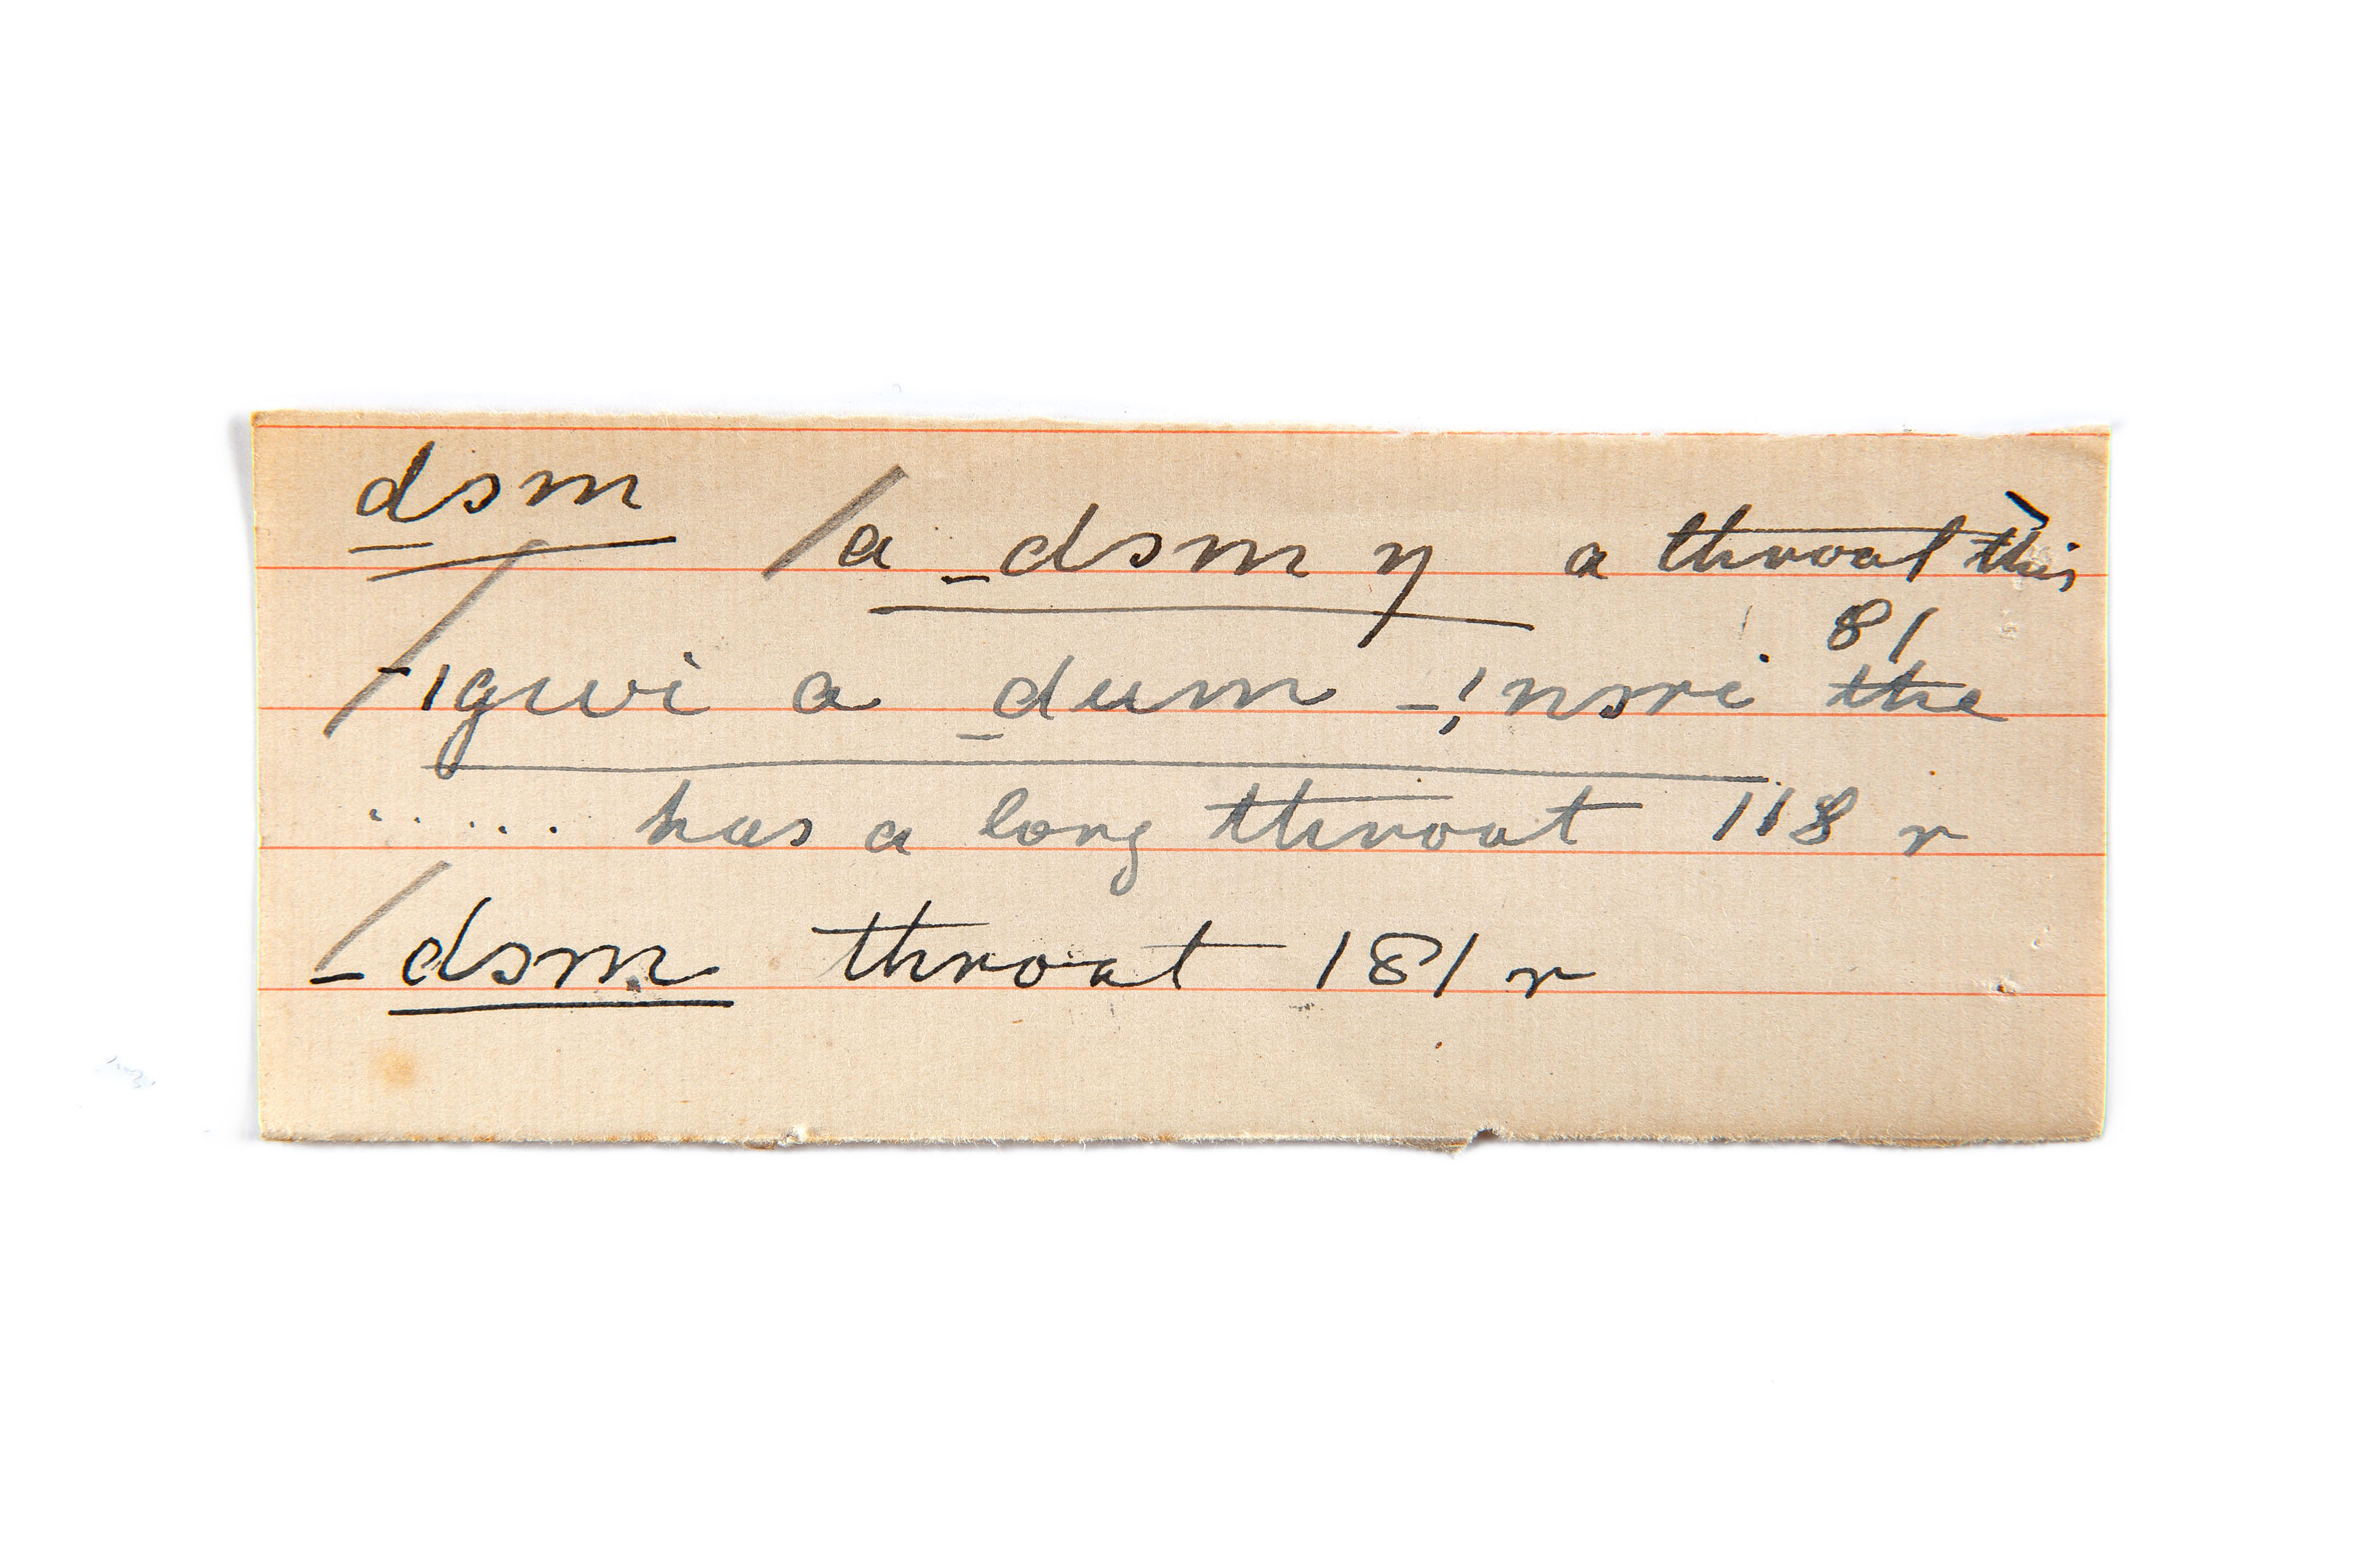 dsm
/a _dsm ŋ a throat this
81
/-ıgwi a _dum -!nsri the
..... has a long throat 118 r
/_dsm throat 181 r